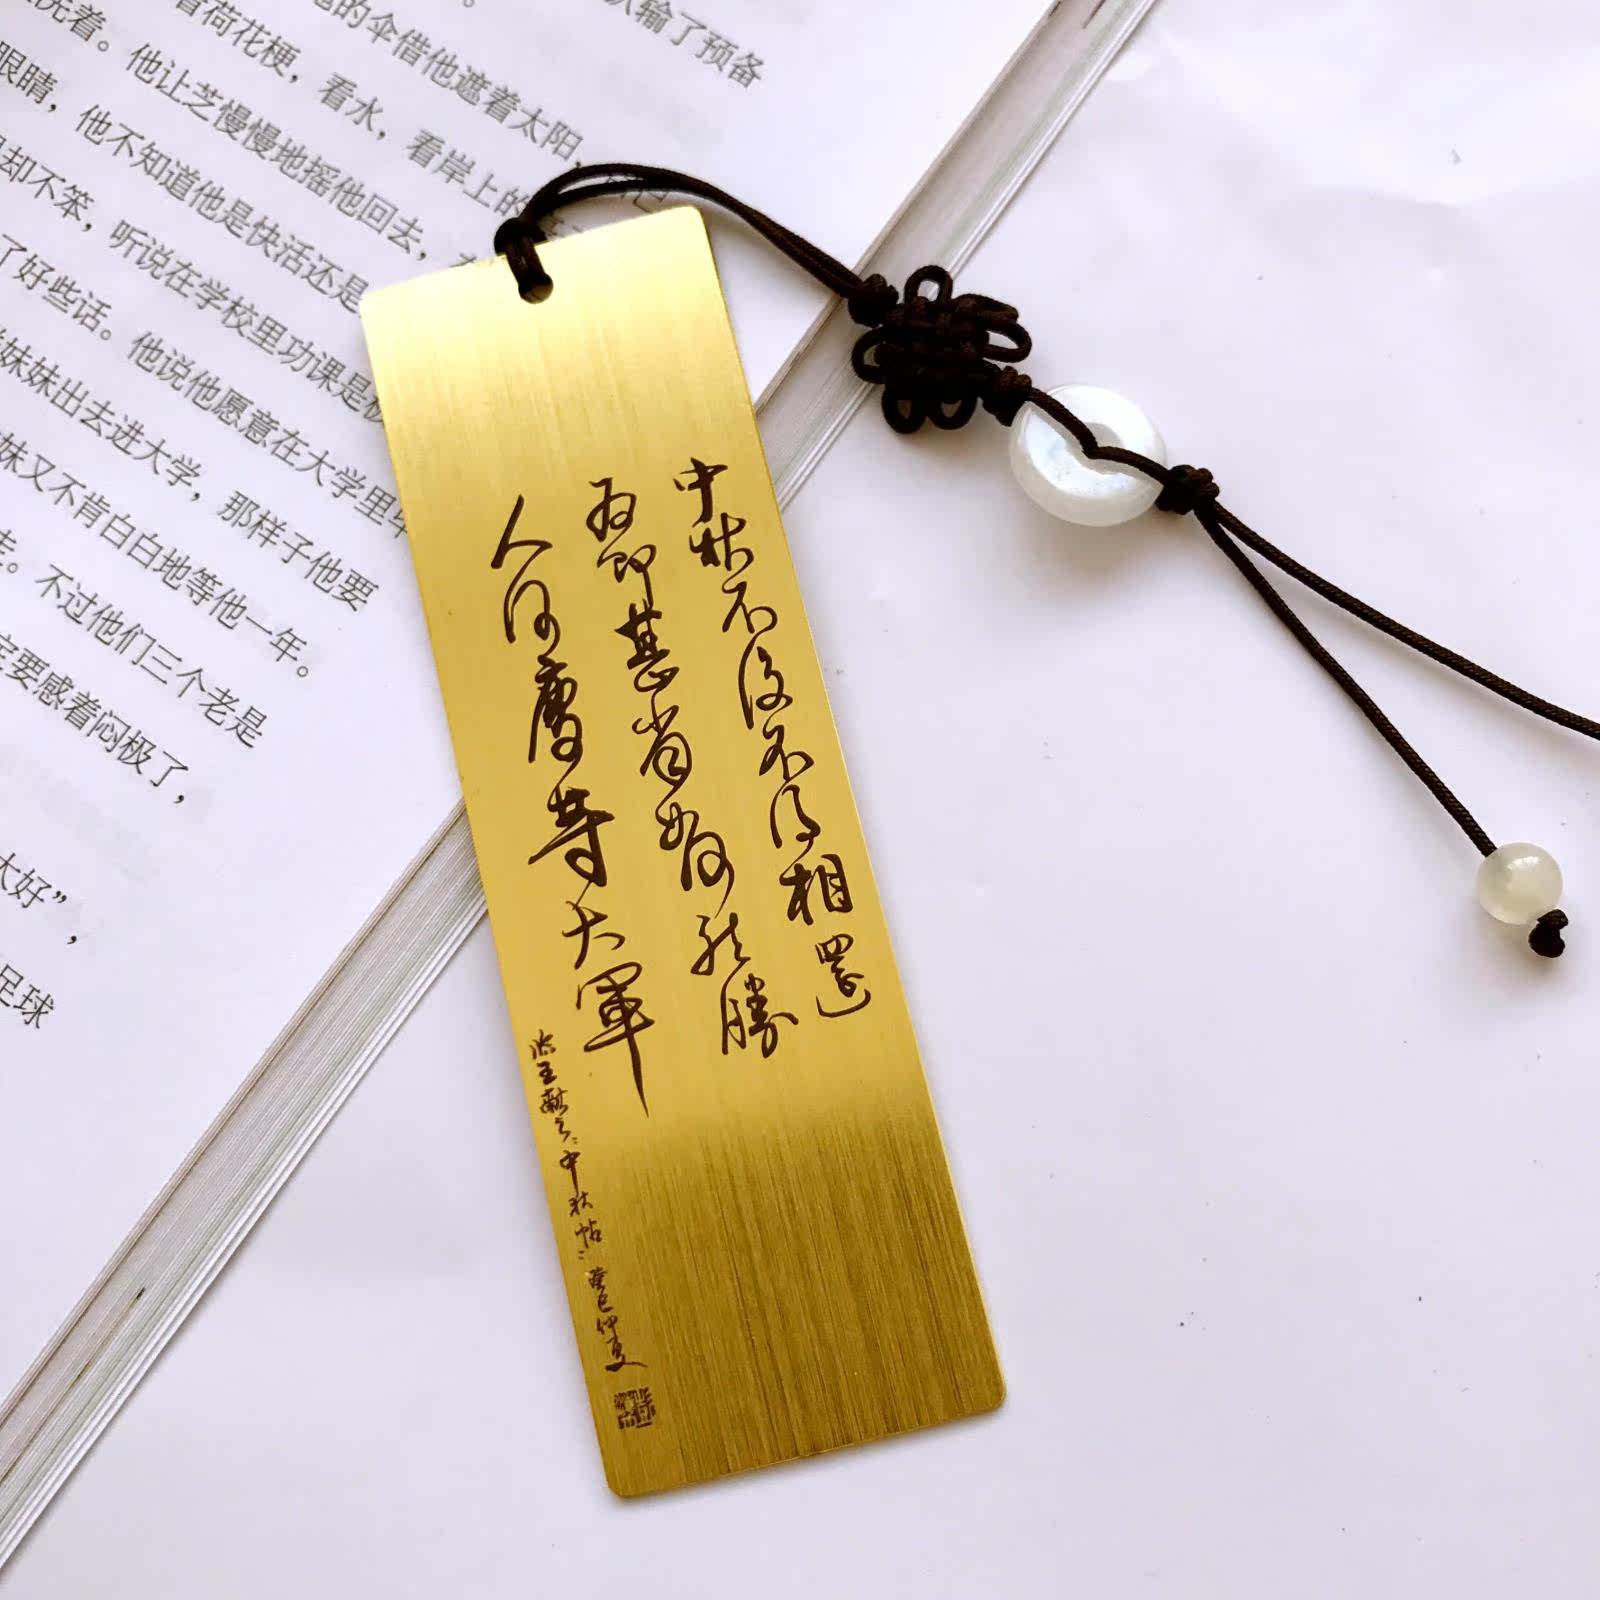 输了预备
的伞借他遮着太阳，
着荷花梗，看水，看岸上的
洗着。他让芝慢慢地摇他回去，
眼睛，他不知道他是快活还是
却不笨，听说在学校里功课是极
了好些话。他说他愿意在大学里毕
妹妹出去进大学，那样子他要
妹又不肯白白地等他一年。
走。不过他们三个老是
定要感着闷极了，
太好”，
足球
中秋不復不得相還
為即甚省如何然勝
人何慶等大軍
臨王獻之:中秋帖:癸巳仲夏